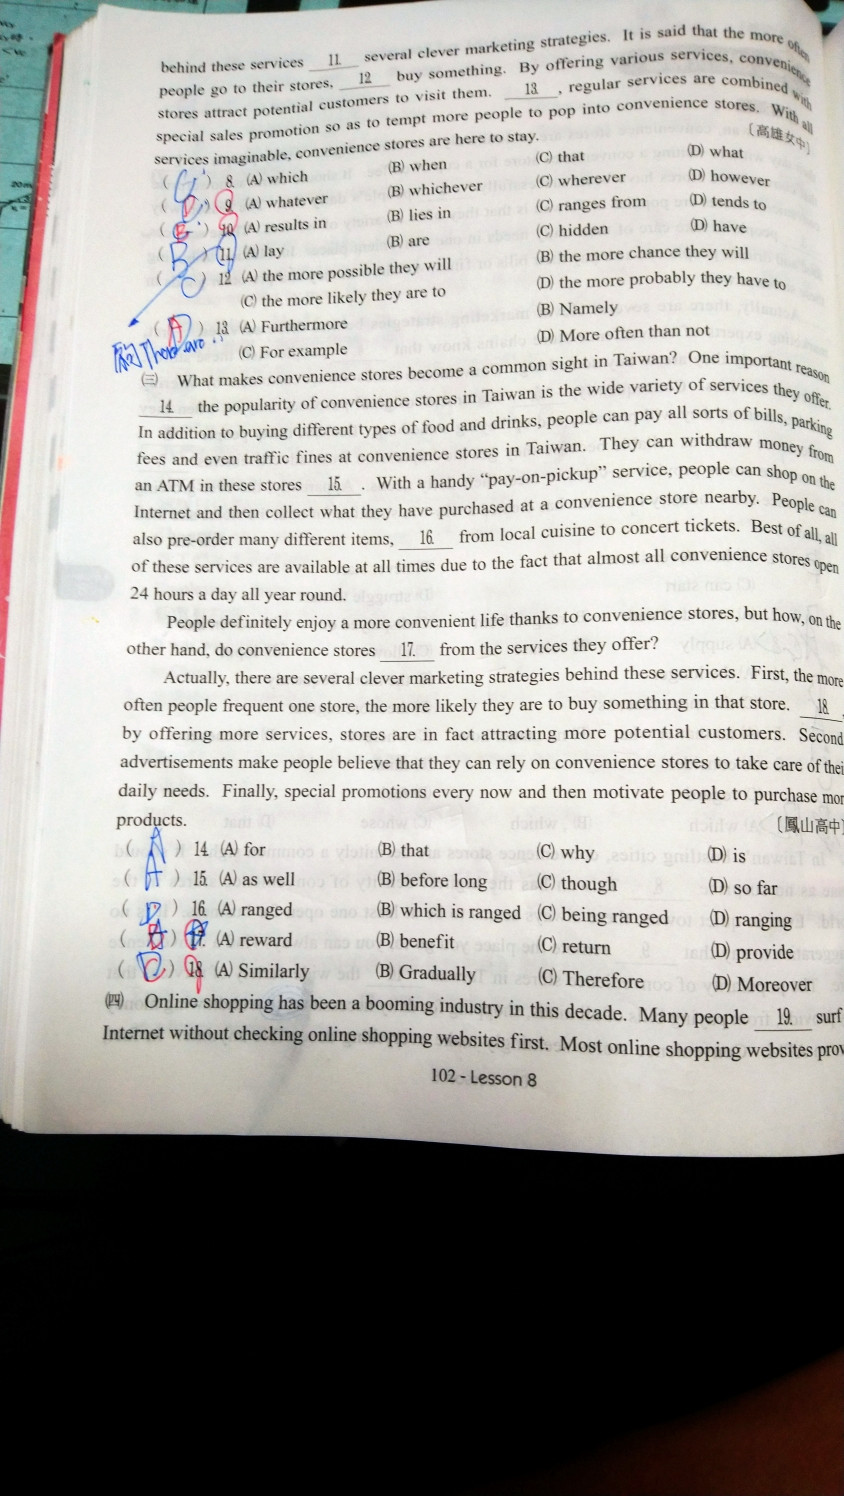 behind these services 11. several clever marketing strategies. It is said that the more often
people go to their stores, 12. buy something. By offering various services, convenience
stores attract potential customers to visit them. 13. , regular services are combined with
special sales promotion so as to tempt more people to pop into convenience stores. With all
services imaginable, convenience stores are here to stay. 〔高雄女中〕
( ) 8. (A) which (B) when (C) that (D) what
( D ) 9. (A) whatever (B) whichever (C) wherever (D) however
( B ) 10. (A) results in (B) lies in (C) ranges from (D) tends to
( B ) 11. (A) lay (B) are (C) hidden (D) have
( C ) 12. (A) the more possible they will (B) the more chance they will
(C) the more likely they are to (D) the more probably they have to
( A ) 13. (A) Furthermore (B) Namely
(C) For example (D) More often than not
㈢ What makes convenience stores become a common sight in Taiwan? One important reason
14. the popularity of convenience stores in Taiwan is the wide variety of services they offer.
In addition to buying different types of food and drinks, people can pay all sorts of bills, parking
fees and even traffic fines at convenience stores in Taiwan. They can withdraw money from
an ATM in these stores 15. . With a handy “pay-on-pickup” service, people can shop on the
Internet and then collect what they have purchased at a convenience store nearby. People can
also pre-order many different items, 16. from local cuisine to concert tickets. Best of all, all
of these services are available at all times due to the fact that almost all convenience stores open
24 hours a day all year round.
People definitely enjoy a more convenient life thanks to convenience stores, but how, on the
other hand, do convenience stores 17. from the services they offer?
Actually, there are several clever marketing strategies behind these services. First, the more
often people frequent one store, the more likely they are to buy something in that store. 18.
by offering more services, stores are in fact attracting more potential customers. Second
advertisements make people believe that they can rely on convenience stores to take care of thei
daily needs. Finally, special promotions every now and then motivate people to purchase mor
products. 〔鳳山高中〕
( A ) 14. (A) for (B) that (C) why (D) is
( A ) 15. (A) as well (B) before long (C) though (D) so far
( D ) 16. (A) ranged (B) which is ranged (C) being ranged (D) ranging
( B ) 17. (A) reward (B) benefit (C) return (D) provide
( C ) 18. (A) Similarly (B) Gradually (C) Therefore (D) Moreover
㈣ Online shopping has been a booming industry in this decade. Many people 19. surf
Internet without checking online shopping websites first. Most online shopping websites prov
102 - Lesson 8